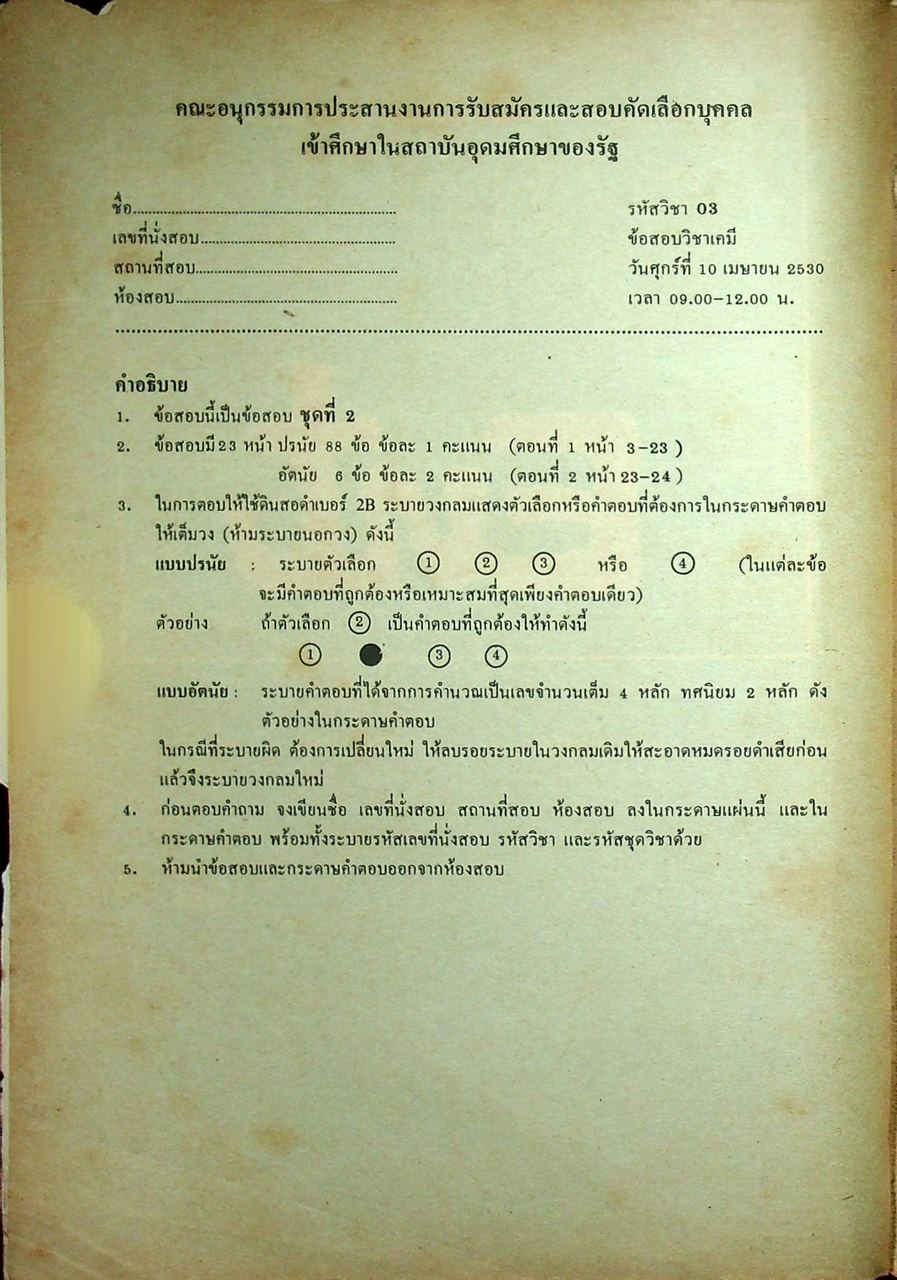 คณะอนุกรรมการประสานงานการรับสมัครและสอบคัดเลือกบุคคล
เข้าศึกษาในสถาบันอุดมศึกษาของรัฐ
ชื่อ................................................................ รหัสวิชา 03
เลขที่นั่งสอบ................................................ ข้อสอบวิชาเคมี
สถานที่สอบ.................................................. วันศุกร์ที่ 10 เมษายน 2530
ห้องสอบ...................................................... เวลา 09.00-12.00 น.
คำอธิบาย
1. ข้อสอบนี้เป็นข้อสอบ ชุดที่ 2
2. ข้อสอบมี 23 หน้า ปรนัย 88 ข้อ ข้อละ 1 คะแนน (ตอนที่ 1 หน้า 3-23 )
อัตนัย 6 ข้อ ข้อละ 2 คะแนน (ตอนที่ 2 หน้า 23-24 )
3. ในการตอบให้ใช้ดินสอดำเบอร์ 2B ระบายวงกลมแสดงตัวเลือกหรือคำตอบที่ต้องการในกระดาษคำตอบ
ให้เต็มวง (ห้ามระบายนอกวง) ดังนี้
แบบปรนัย : ระบายตัวเลือก ① ② ③ หรือ ④ (ในแต่ละข้อ
จะมีคำตอบที่ถูกต้องหรือเหมาะสมที่สุดเพียงคำตอบเดียว)
ตัวอย่าง ถ้าตัวเลือก ② เป็นคำตอบที่ถูกต้องให้ทำดังนี้
① ● ③ ④
แบบอัตนัย : ระบายคำตอบที่ได้จากการคำนวณเป็นเลขจำนวนเต็ม 4 หลัก ทศนิยม 2 หลัก ดัง
ตัวอย่างในกระดาษคำตอบ
ในกรณีที่ระบายผิด ต้องการเปลี่ยนใหม่ ให้ลบรอยระบายในวงกลมเดิมให้สะอาดหมดรอยดำเสียก่อน
แล้วจึงระบายวงกลมใหม่
4. ก่อนตอบคำถาม จงเขียนชื่อ เลขที่นั่งสอบ สถานที่สอบ ห้องสอบ ลงในกระดาษแผ่นนี้ และใน
กระดาษคำตอบ พร้อมทั้งระบายรหัสเลขที่นั่งสอบ รหัสวิชา และรหัสชุดวิชาด้วย
5. ห้ามนำข้อสอบและกระดาษคำตอบออกจากห้องสอบ